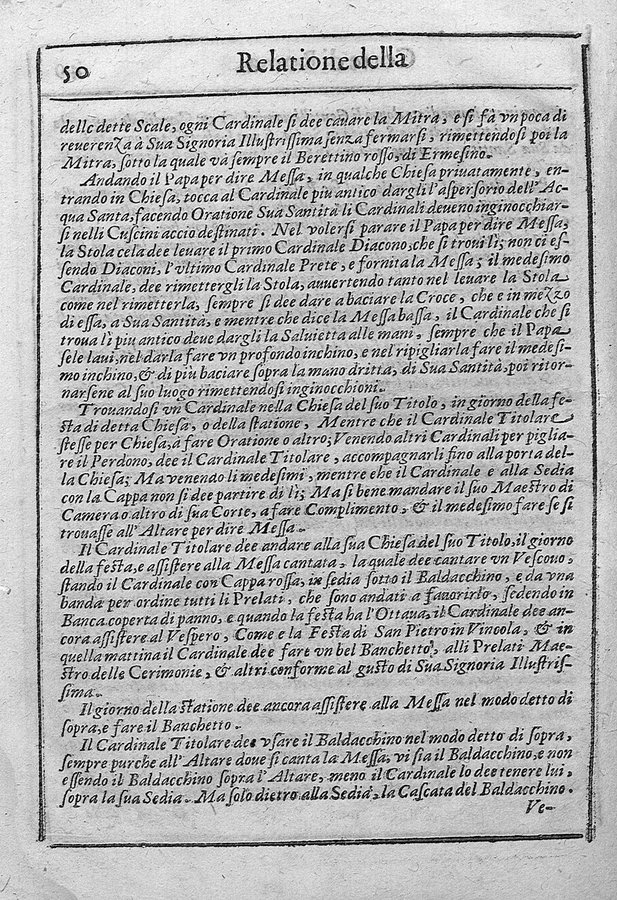 50
Relatione della
delle dette Scale, ogni Cardinale si dee cauare la Mitra, e si fà vn poca di
reuerenza à Sua Signoria Illustrissima senza fermarsi, rimettendosi poi la
Mitra, sotto la quale và sempre il Berettino rosso, di Ermesino.
Andando il Papa per dire Messa, in qualche Chiesa priuatamente, en-
trando in Chiesa, tocca al Cardinale piu antico dargli l'aspersorio dell'Ac-
qua Santa, facendo Oratione Sua Santità li Cardinali deueno inginocchiar-
si nelli Cuscini accio destinati. Nel volersi parare il Papa per dire Messa,
la Stola cela dee leuare il primo Cardinale Diacono, che si troui lì; non ci es-
sendo Diaconi, l'vltimo Cardinale Prete, e fornita la Messa; il medesimo
Cardinale, dee rimettergli la Stola, auuertendo tanto nel leuare la Stola
come nel rimetterla, sempre si dee dare a baciare la Croce, che e in mezzo
di essa, a Sua Santità, e mentre che dice la Messa bassa, il Cardinale che si
troua lì piu antico deve dargli la Saluietta alle mani, sempre che il Papa
sele laui, nel darla fare vn profondo inchino, e nel ripigliarla fare il medesi-
mo inchino, & di più baciare sopra la mano dritta, di Sua Santità, poi ritor-
narsene al suo luogo rimettendosi inginocchioni.
Trouandosi vn Cardinale nella Chiesa del suo Titolo, in giorno della fe-
sta di detta Chiesa, o della statione, Mentre che il Cardinale Titolare
stesse per Chiesa, à fare Oratione o altro; Venendo altri Cardinali per piglia-
re il Perdono, dee il Cardinale Titolare, accompagnarli fino alla porta del-
la Chiesa; Ma venendo li medesimi, mentre ehe il Cardinale e alla Sedia
con la Cappa non si dee partire di lì; Ma si bene mandare il suo Maestro di
Camera o altro di sua Corte, a fare Complimento, & il medesimo fare se si
trouasse all'Altare per dire Messa.
Il Cardinale Titolare dee andare alla sua Chiesa del suo Titolo, il giorno
della festa, e assistere alla Messa cantata, la quale dee cantare vn Vescouo,
stando il Cardinale con Cappa rossa, in sedia sotto il Baldacchino, e da vna
banda per ordine tutti li Prelati, che sono andati a fauorirlo, sedendo in
Banca coperta di panno, e quando la festa ha l'Ottaua, il Cardinale dee an-
cora assistere al Vespero, Come e la Festa di San Pietro in Vincola, & in
quella mattina il Cardinale dee fare vn bel Banchetto, alli Prelati Mae-
stro delle Cerimonie, & altri conforme al gusto di Sua Signoria Illustris-
sima.
Il giorno della statione dee ancora assistere alla Messa nel modo detto di
sopra, e fare il Banchetto.
Il Cardinale Titolare dee vsare il Baldacchino nel modo detto di sopra,
sempre purche all'Altare doue si canta la Messa, vi sia il Baldacchino, e non
essendo il Baldacchino sopra l'Altare, meno il Cardinale lo dee tenere lui,
sopra la sua Sedia. Ma solo dietro alla Sedia, la Cascata del Baldacchino.
Ve-